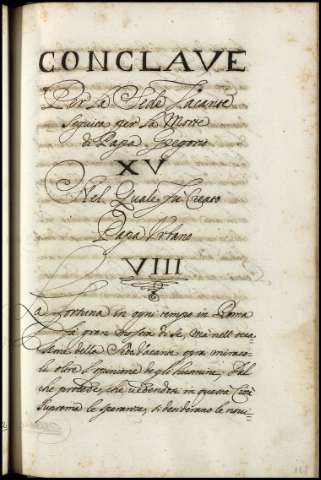 CONCLAVE
Per La Sede Vacante
Seguita per la Morte
di Papa Gregorio
XV
Nel Quale fu Creato
Papa Urbano
VIII
La Fortuna in ogni tempo in Roma
fà gran di se, mà nell occa-
sione della Sede Vacante opra miraco-
li oltre l'opinione degli huomini,
che procede, che vedendosi in questa Città
suprema le speranze, si desiderano le novi-